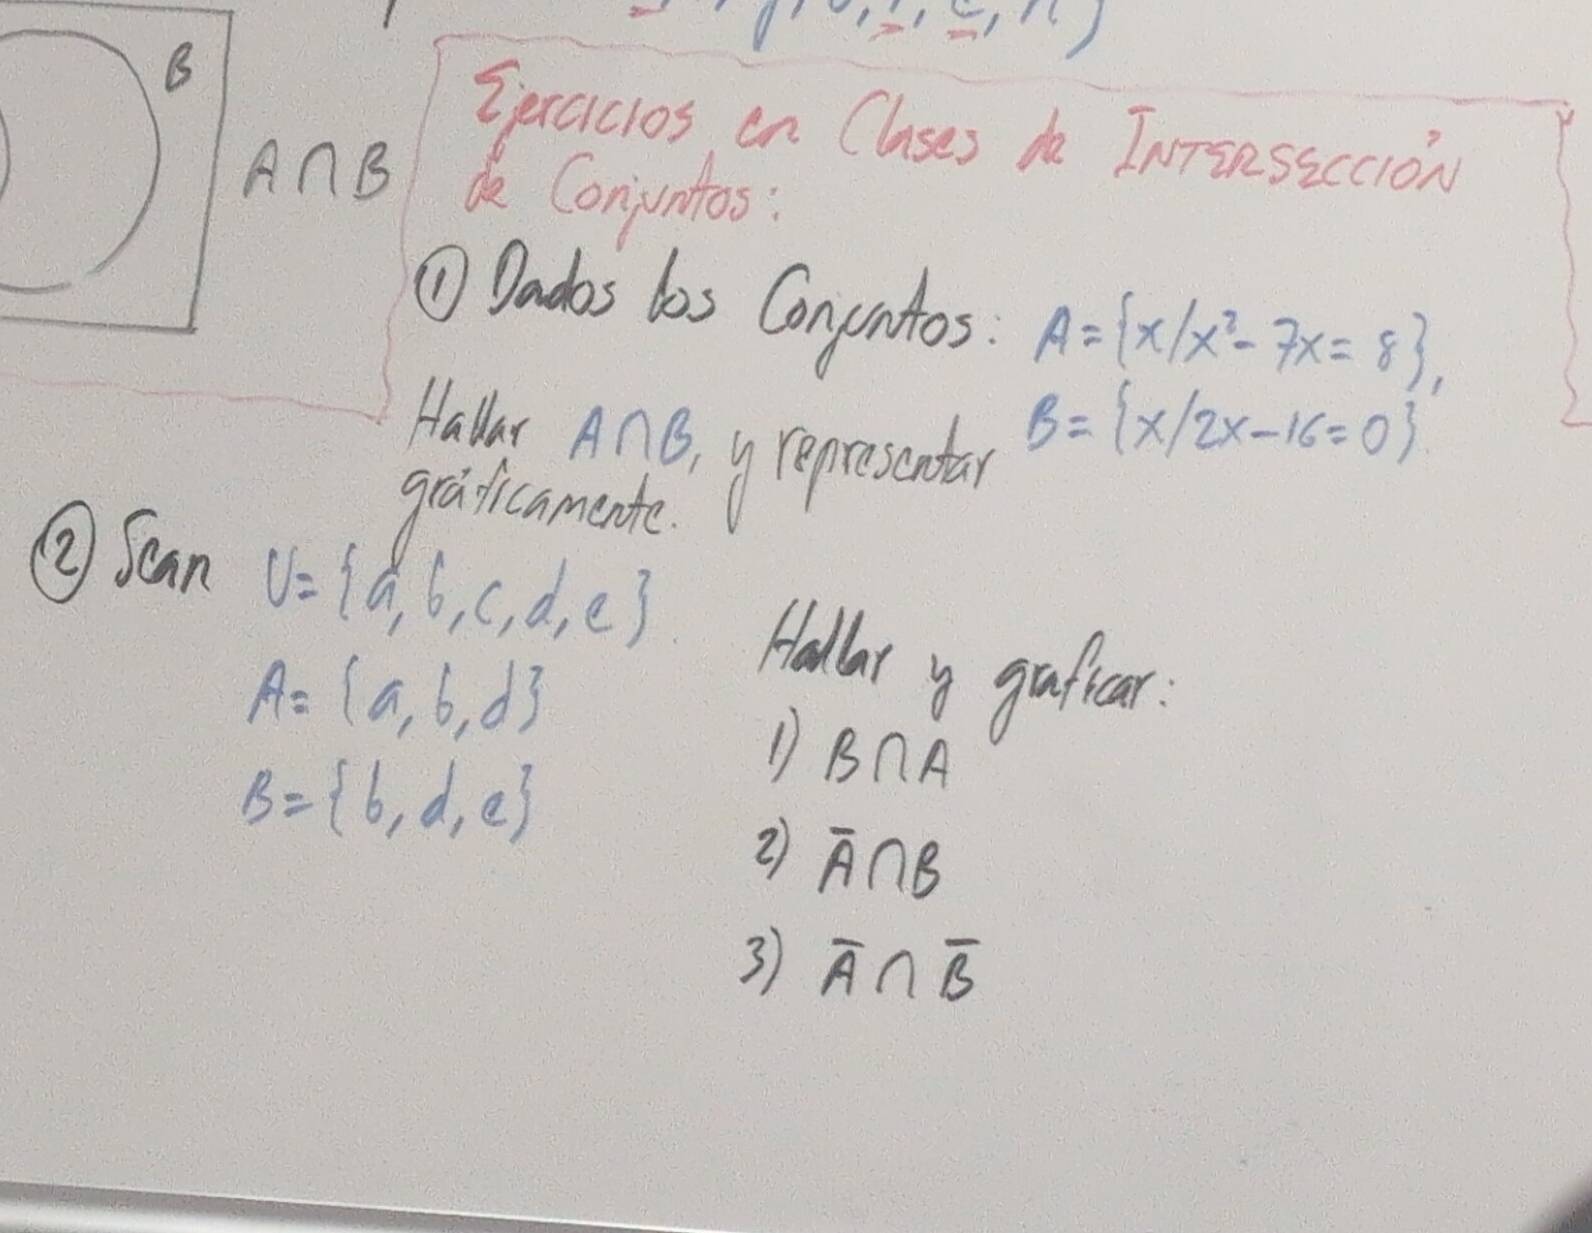 B
A∩B
Ejercicios en Clases de INTERSECCIÓN
de Conjuntos:
① Dados los Conjuntos: A={x/x²-7x=8},
B={x/2x-16=0}.
Hallar A∩B, y representar
gráficamente.
② Sean U={a,b,c,d,e}.
A={a,b,d}
B={b,d,e}
Hallar y graficar:
1) B∩A
2) A̅∩B
3) A̅∩B̅